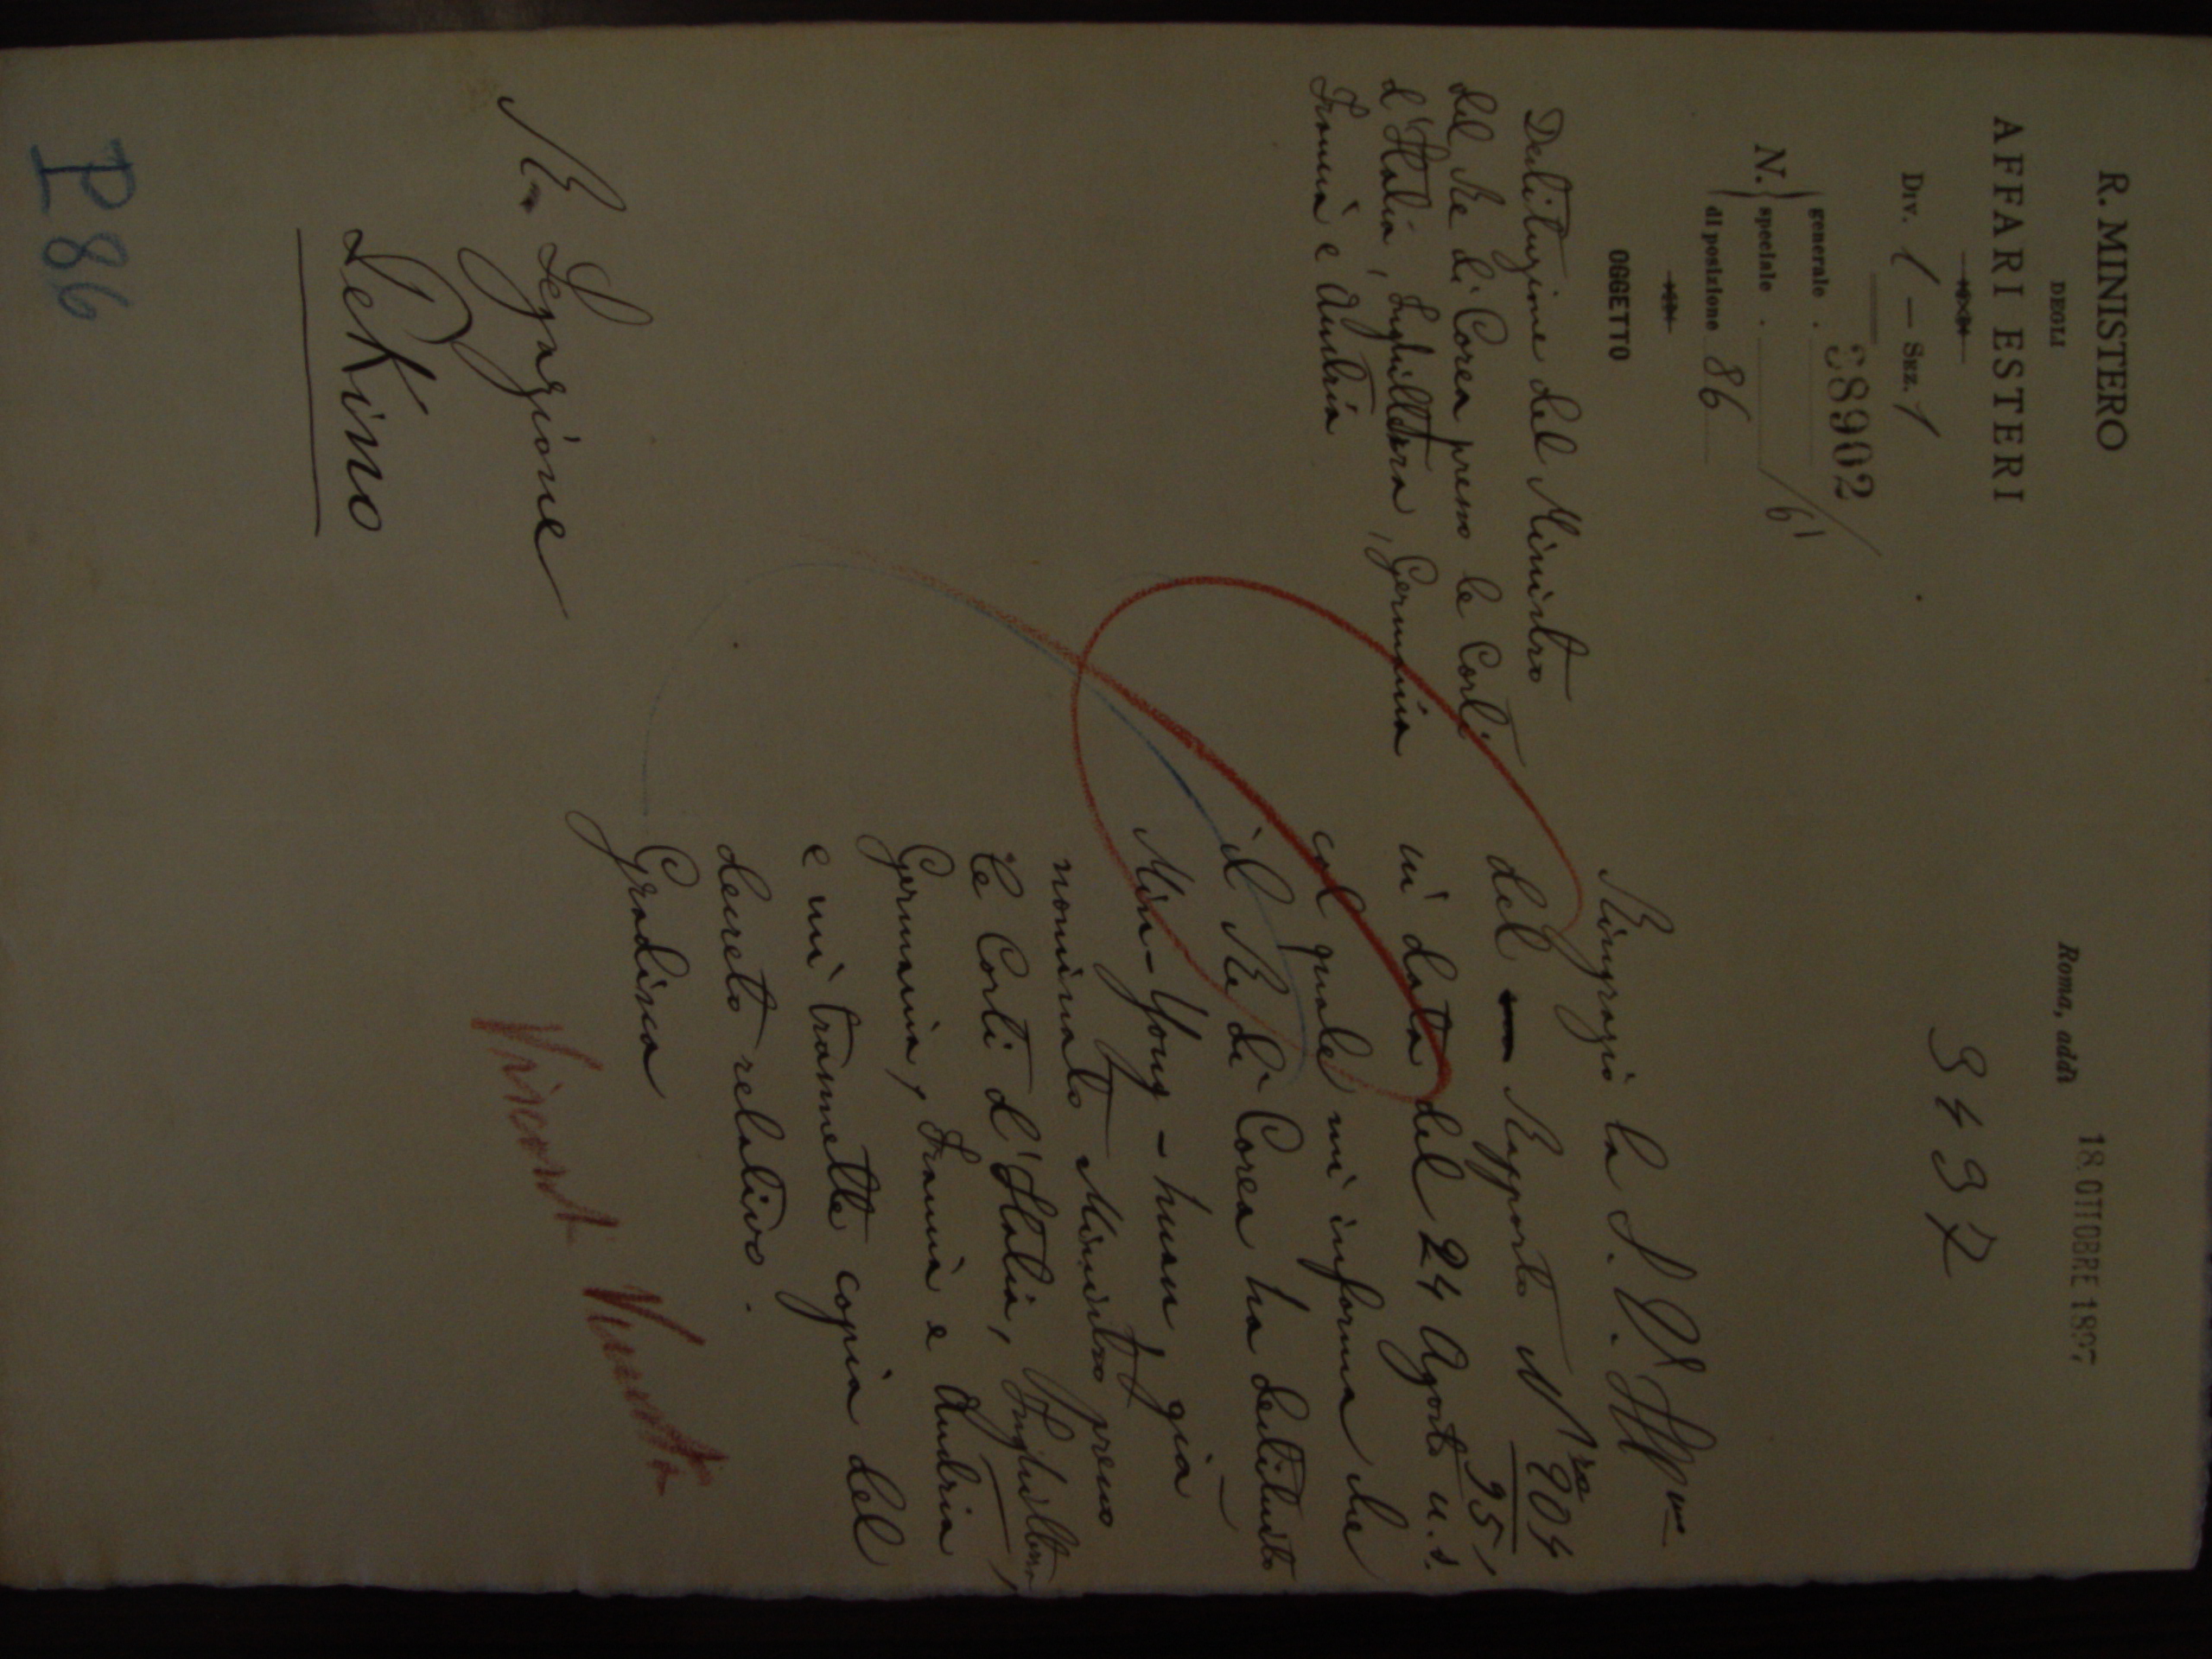 R. MINISTERO
DEGLI
AFFARI ESTERI
Div. 1 - Sez. 1
N. generale . 38902
speciale . /61
di posizione 86
OGGETTO
Destituzione del Ministro
del Re di Corea presso le Corti
d'Italia, Inghilterra, Germania
Francia e Austria
R. Legazione
Pekino
P 86
Roma, addì 18. OTTOBRE 1897
3497
Ringrazio la S. V. Ill.ma
del Rapporto N.ro 204/95,
in data del 24 Agosto u.s.
col quale mi informa che
il Re di Corea ha destituito
Min-Yong-huan già
nominato Ministro presso
le Corti d'Italia, Inghilterra,
Germania, Francia e Austria
e mi trasmette copia del
decreto relativo.
Gradisca
Visconti Venosta